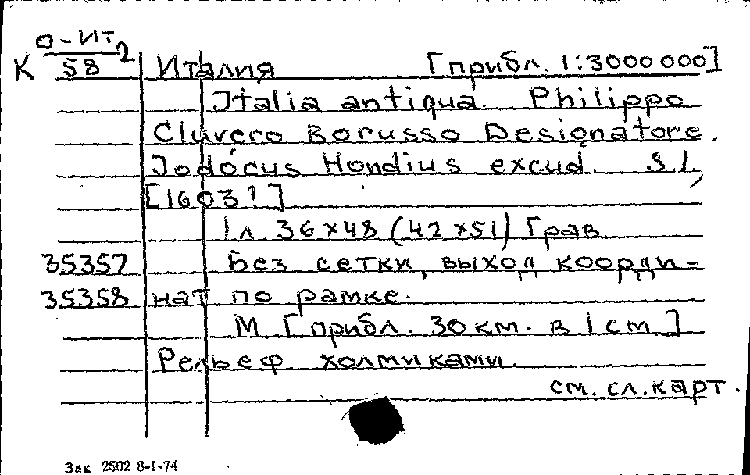 О-ИТ2
К 58 Италия [прибл. 1:3000000]
Italia antiqua. Philippo
Cluvero Borusso Designatore.
Jodocus Hondius excud. S.l,
[1603?]
1 л. 36×48 (42×51) Грав
35357 Без сетки, выход коорди-
35358 нат по рамке.
М [прибл. 30 км. в 1 см.]
Рельеф холмиками.
см. сл. карт.
Зак 2502 8-I-74